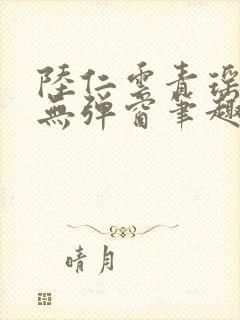 陸仁雲青瑤
無彈窗筆趣
晴月